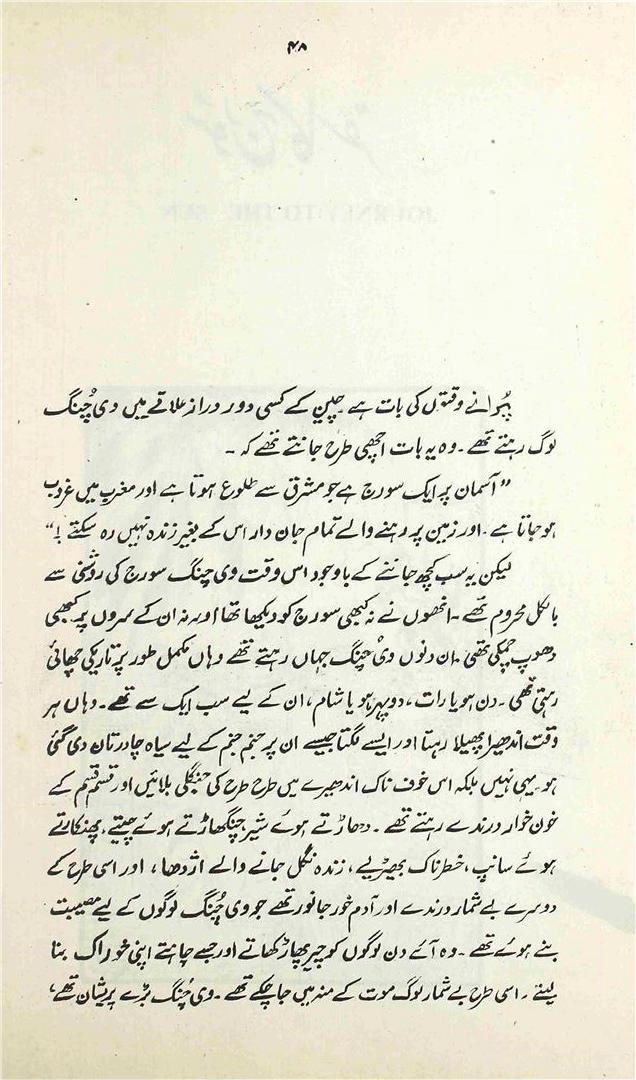 ۴۸
پُرانے وقتوں کی بات ہے چین کے کسی دور دراز علاقے میں دی چُنگ
لوگ رہتے تھے۔ وہ یہ بات اچھی طرح جانتے تھے کہ ۔
"آسمان پر ایک سورج ہے جو مشرق سے طلوع ہوتا ہے اور مغرب میں غروب
ہو جاتا ہے۔ اور زمین پر رہنے والے تمام جان دار اس کے بغیر زندہ نہیں رہ سکتے!"
لیکن یہ سب کچھ جاننے کے باوجود اس وقت وی چنگ سورج کی روشنی سے
بالکل محروم تھے۔ انھوں نے نہ کبھی سورج کو دیکھا تھا اور نہ ان کے سروں پر کبھی
دھوپ چمکی تھی۔ ان دنوں دی چنگ جہاں رہتے تھے وہاں مکمل طور پر تاریکی چھائی
رہتی تھی۔ دن ہو یا رات، دوپہر ہو یا شام، ان کے لیے سب ایک سے تھے۔ وہاں ہر
وقت اندھیرا پھیلا رہتا اور ایسے لگتا جیسے ان پر جنم جنم کے لیے سیاہ چادر تان دی گئی
ہو۔ یہی نہیں بلکہ اس خوف ناک اندھیرے میں طرح طرح کی جنگلی بلائیں اور قسم قسم کے
خون خوار درندے رہتے تھے۔ دھاڑتے ہوئے شیر، چنگھاڑتے ہوئے چیتے، پھنکارتے
ہوئے سانپ، خطرناک بھیڑیے، زندہ نگل جانے والے اژدھا، اور اسی طرح کے
دوسرے بے شمار درندے اور آدم خور جانور تھے جو وی چُنگ لوگوں کے لیے مصیبت
بنے ہوئے تھے۔ وہ آئے دن لوگوں کو چیر پھاڑ کھاتے اور جسے چاہتے اپنی خوراک بنا
لیتے۔ اسی طرح بے شمار لوگ موت کے منہ میں جا چکے تھے۔ وی چُنگ بڑے پریشان تھے،